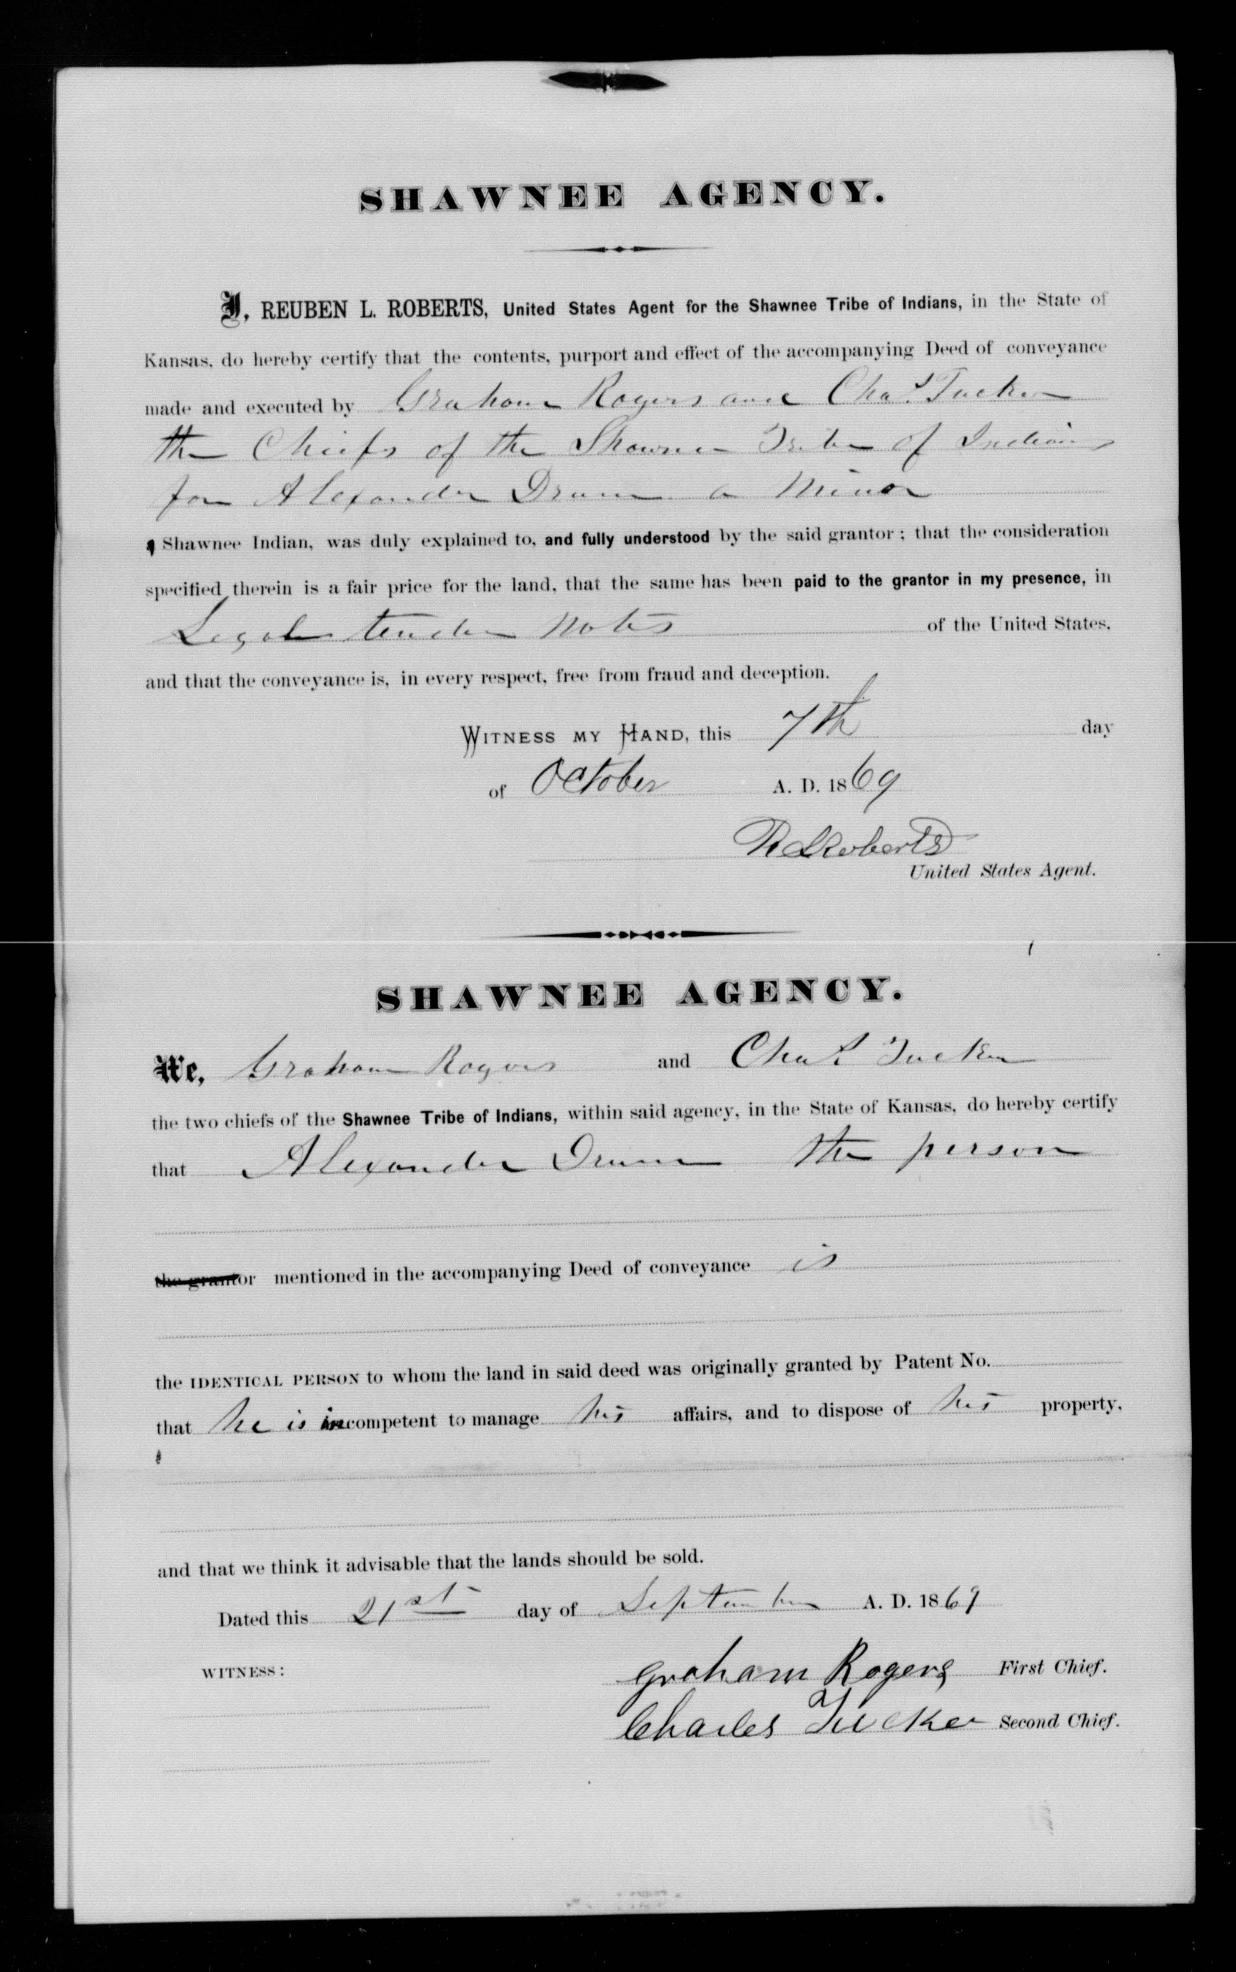 SHAWNEE AGENCY.
I, REUBEN L. ROBERTS, United States Agent for the Shawnee Tribe of Indians, in the State of
Kansas, do hereby certify that the contents, purport and effect of the accompanying Deed of conveyance
made and executed by Graham Rogers and Chas Tucker
the Chiefs of the Shawnee Tribe of Indians
for Alexander Drum a Minor
Shawnee Indian, was duly explained to, and fully understood by the said grantor; that the consideration
specified therein is a fair price for the land, that the same has been paid to the grantor in my presence, in
Legal tender Notes of the United States,
and that the conveyance is, in every respect, free from fraud and deception.
WITNESS MY HAND, this 7th day
of October A. D. 1869
R L Roberts
United States Agent.
SHAWNEE AGENCY.
We, Graham Rogers and Chas Tucker
the two chiefs of the Shawnee Tribe of Indians, within said agency, in the State of Kansas, do hereby certify
that Alexander Drum the person
the grantor mentioned in the accompanying Deed of conveyance is
the IDENTICAL PERSON to whom the land in said deed was originally granted by Patent No.
that he is incompetent to manage his affairs, and to dispose of his property,
and that we think it advisable that the lands should be sold.
Dated this 21st day of September A. D. 1869
WITNESS:
Graham Rogers First Chief.
Charles Tucker Second Chief.